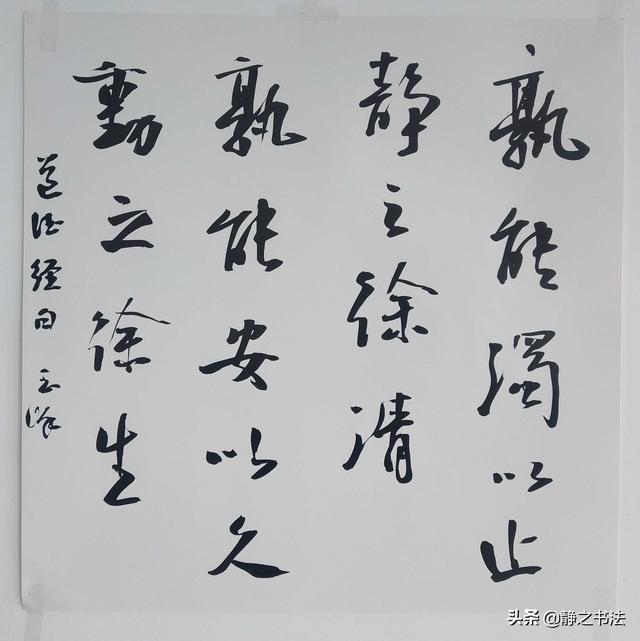 孰能濁以止
静之徐清
孰能安以久
動之徐生
道德經句
头条 @静之书法